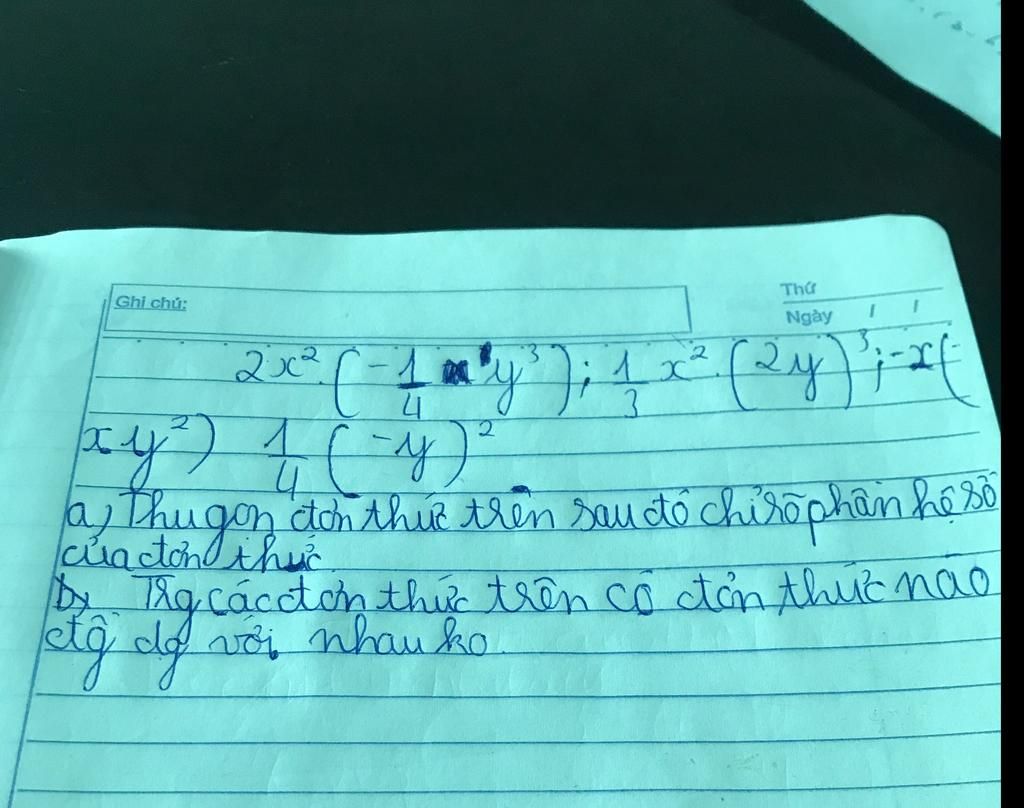 Ghi chú:
Thứ
Ngày / /
2x². (-1/4 y³); 1/3 x². (2y)³; -x(-
xy²) 1/4 (-y)²
a, Thu gọn đơn thức trên sau đó chỉ rõ phần hệ số
của đơn thức.
b, Trg các đơn thức trên có đơn thức nào
đg dg với nhau ko.